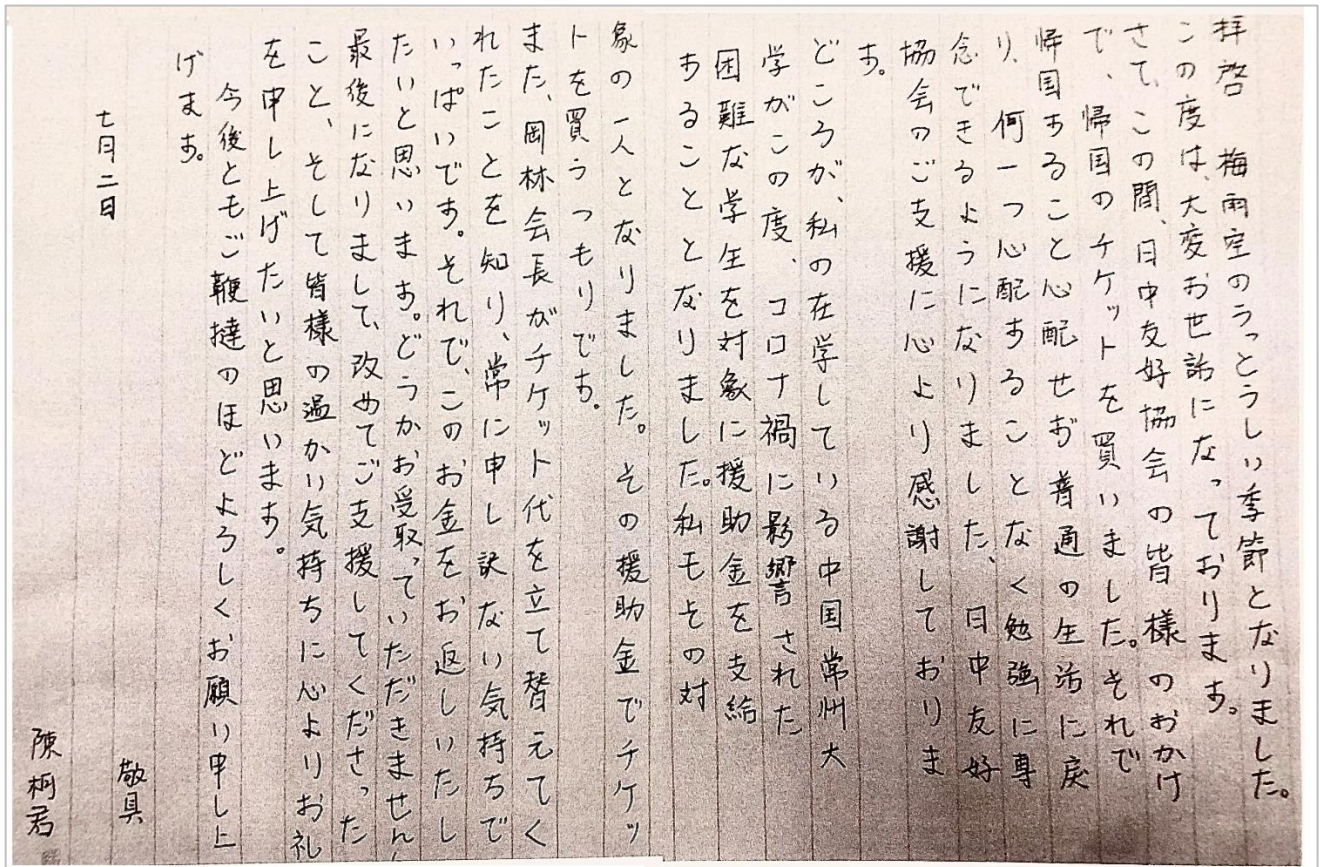 拝啓　梅雨空のうっとうしい季節となりました。
この度は、大変お世話になっております。
さて、この間、日中友好協会の皆様のおかけ
で、帰国のチケットを買いました。それで
帰国すること心配せず普通の生活に戻
り、何一つ心配することなく勉強に専
念できるようになりました、日中友好
協会のご支援に心より感謝しておりま
す。
どころが、私の在学している中国常州大
学がこの度、コロナ禍に影響された
困難な学生を対象に援助金を支給
することとなりました。私もその対
象の一人となりました。その援助金でチケッ
トを買うつもりです。
また、岡林会長がチケット代を立て替元てく
れたことを知り、常に申し訳ない気持ちで
いっぱいです。それで、このお金をお返しいたし
たいと思います。どうかお受取っていただきません
最後になりまして、改めてご支援してくださった
こと、そして皆様の温かい気持ちに心よりお礼
を申し上げたいと思います。
今後ともご鞭撻のほどよろしくお願い申し上
げます。
七月二日
敬具
陳桐君